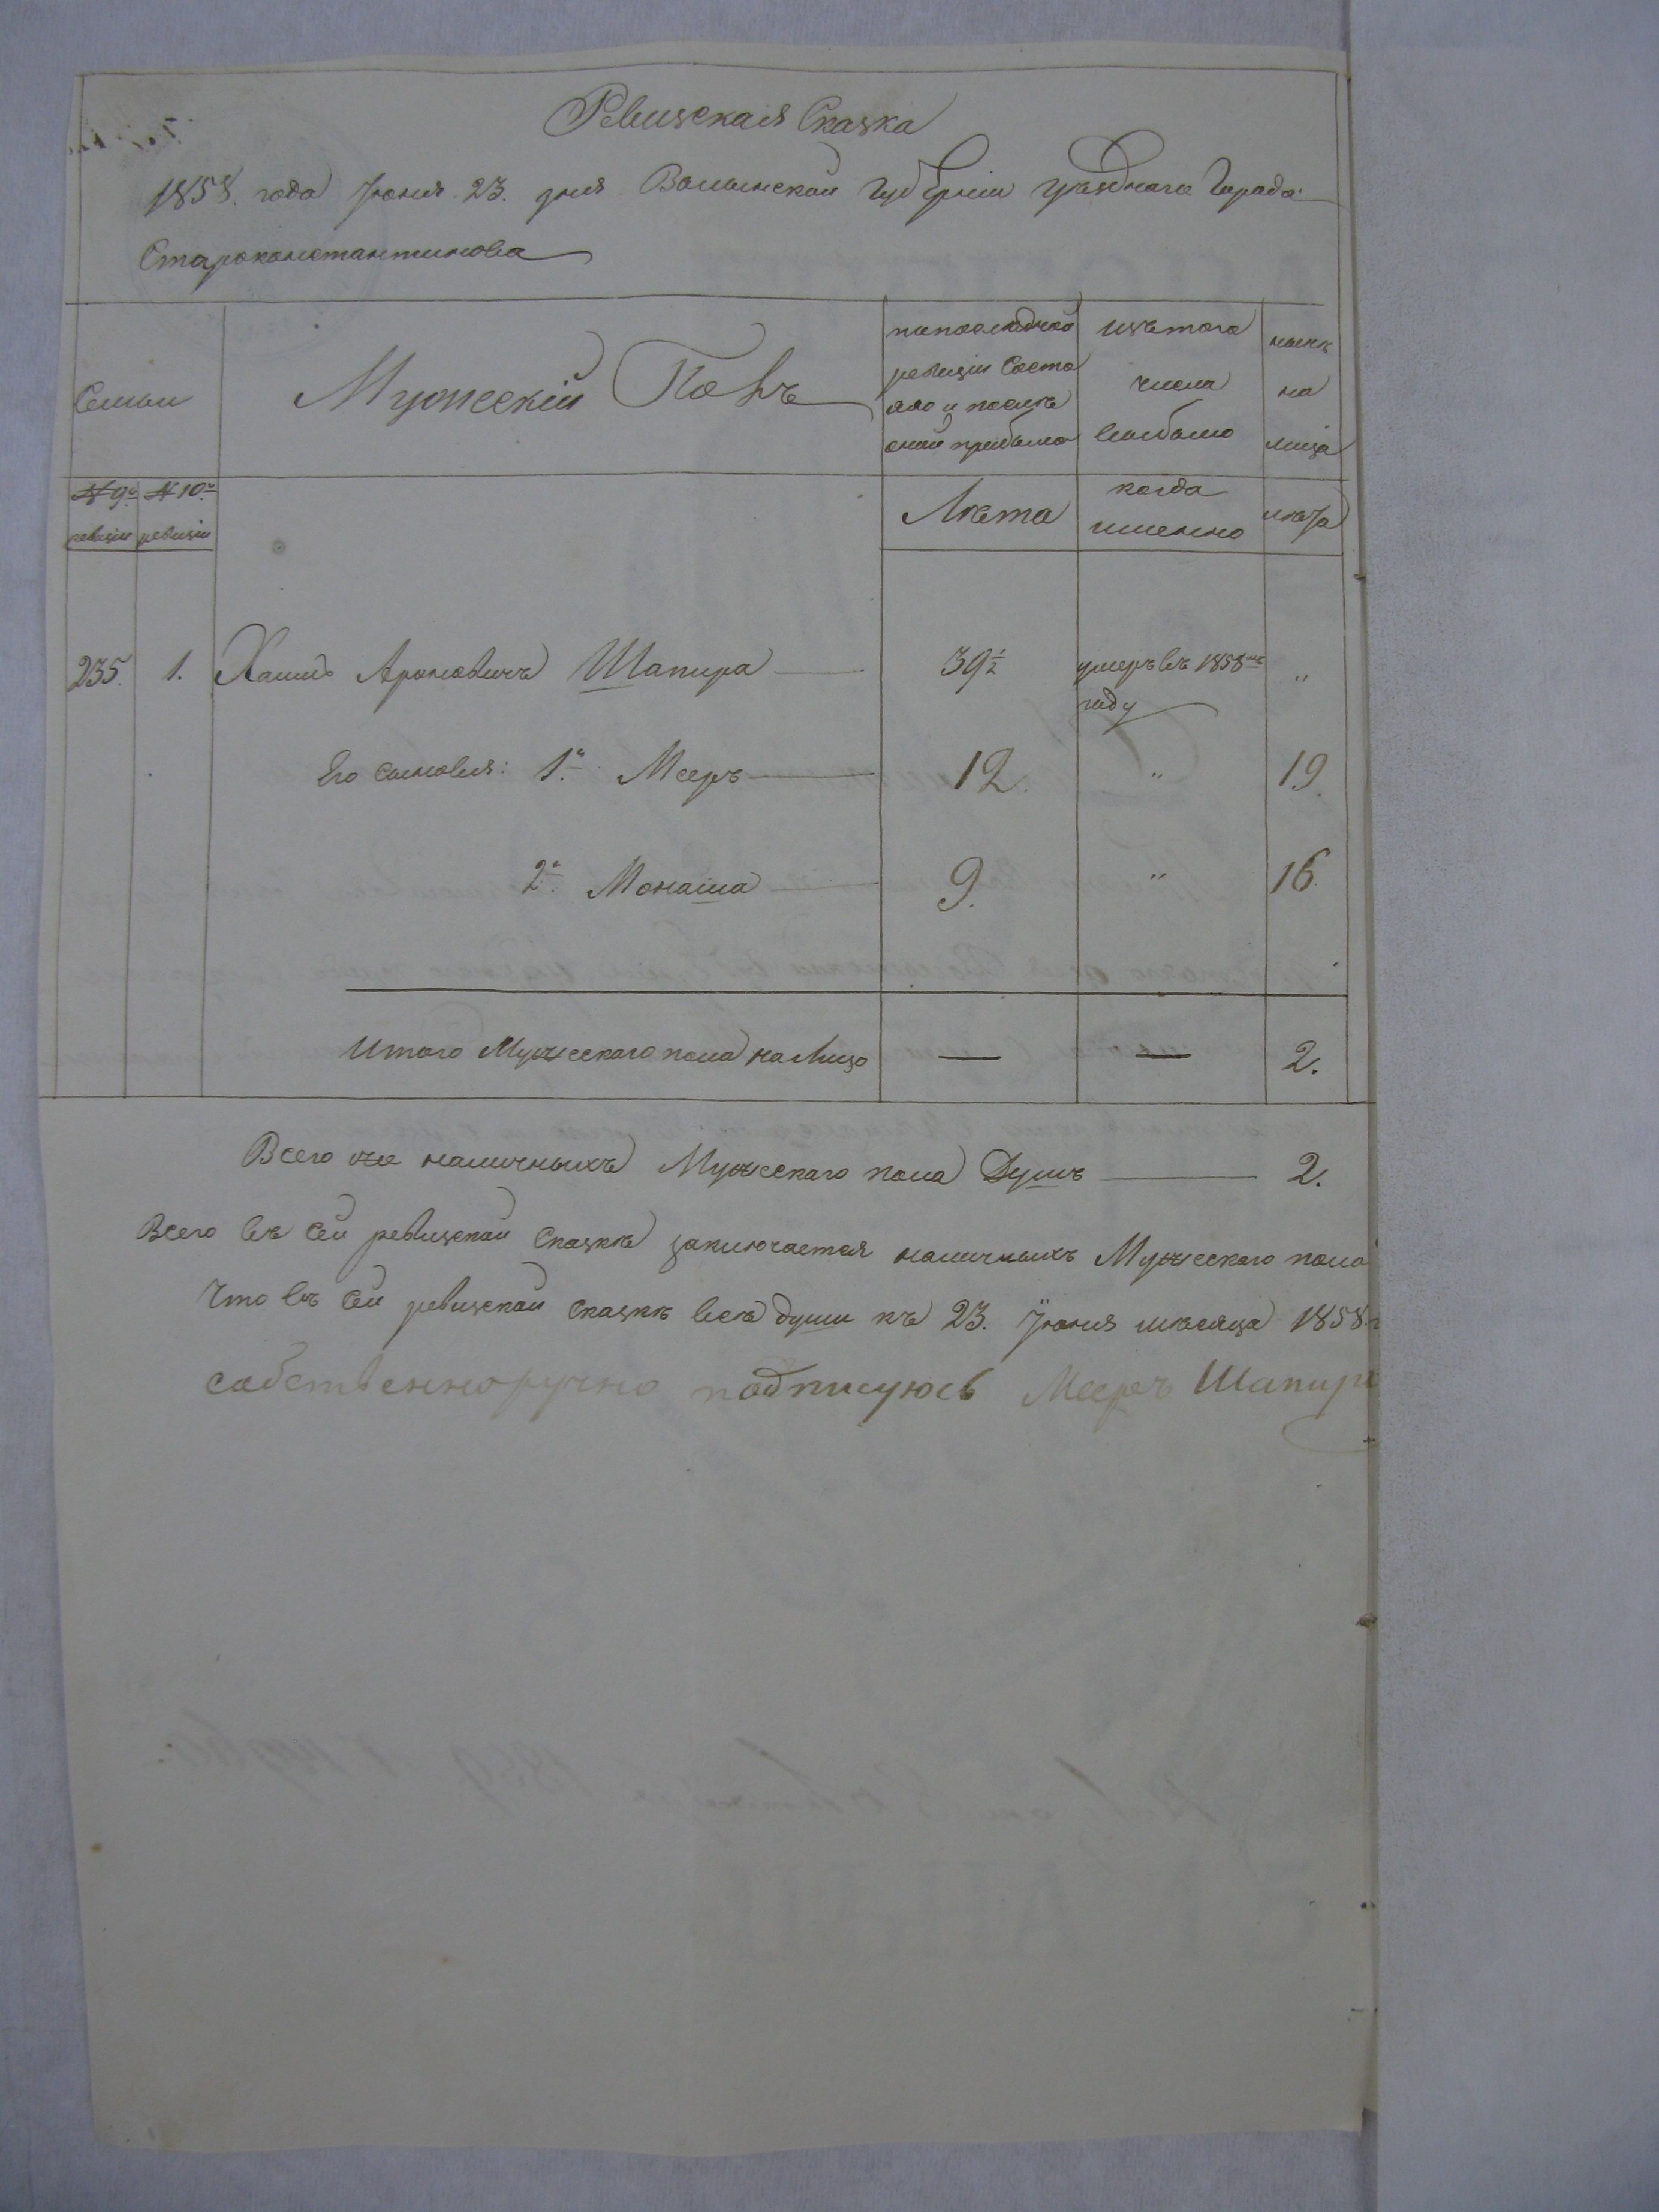 Ревизская Сказка
1858. года Іюня 23. дня Волынской Губерніи уѣзднаго Города
Староконстантинова
Семьи
Мужескій Полъ
по последней ревизіи состояло и послѣ оной прибыло
изъ того числа выбыло
нынѣ на лицо
№ 9й ревизіи
№ 10й ревизіи
Лѣта
когда именно
лѣта
235. 1. Хаимъ Ароновичъ Шапира 39½ умеръ въ 1858мъ году "
Его сыновья: 1й Мееръ 12. " 19.
2й Монаша 9. " 16.
Итого Мужескаго пола на лицо — — 2.
Всего же наличныхъ Мужескаго пола Душъ 2.
Всего въ сей ревизской Сказкѣ заключается наличныхъ Мужескаго пола
Что въ сей ревизской сказкѣ всѣ души къ 23. Іюня мѣсяца 1858.
собственноручно подписуюсь Мееръ Шапир